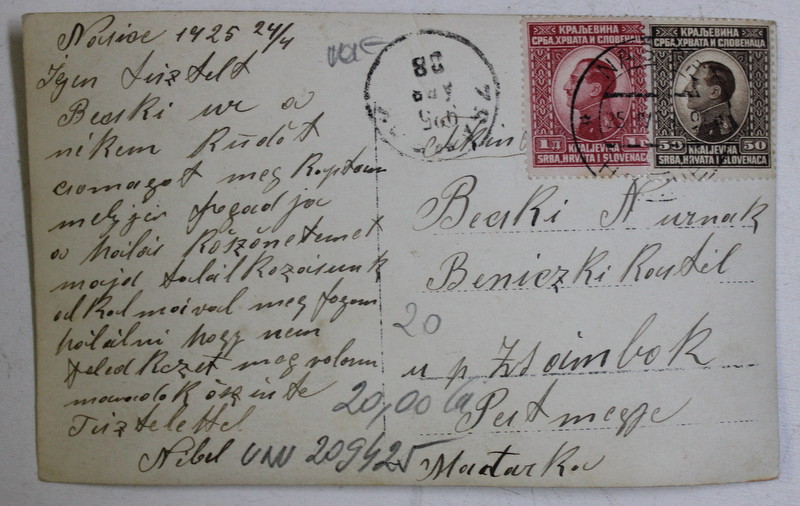 Nasice 1925 24/4
Igen tisztelt
Becski ur a
nékem Küdöt
csomagot meg Kaptam
fogadja
a hálás Köszönetemet
majd talál Kozásunk
al Kalmával meg fogom
hálálni hogy nem
feled Kezet meg rolam
maradok öszinte
Tisztelettel
Nibel
UNV 209425
20,00
20
28
APR
925
КРАЉЕВИНА
СРБА, ХРВАТА И СЛОВЕНАЦА
1 Д
KRALJEVINA
SRBA, HRVATA I SLOVENACA
КРАЉЕВИНА
СРБА, ХРВАТА И СЛОВЕНАЦА
50 50
KRALJEVINA
SRBA, HRVATA I SLOVENACA
Becski N urnak
Beniczki Kastél
u p Zsámbok
Pest megye
Mađarska